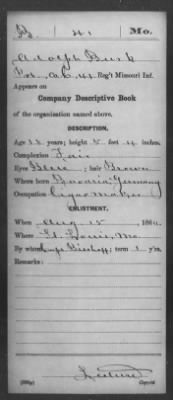 B 41 Mo.
Adolph Busk
Co. 41 Reg't Missouri Inf.
Appears on
Company Descriptive Book
of the organization named above.
DESCRIPTION.
Age years; height 5 feet inches.
Complexion Fair
Eyes Blue; hair Brown
Where born Bavaria Germany
Occupation Cigar Maker
ENLISTMENT.
When Aug 15, 186
Where St. Louis, Mo.
By whom Capt. Bischoff; term 1 y'rs.
Remarks:
Copyist